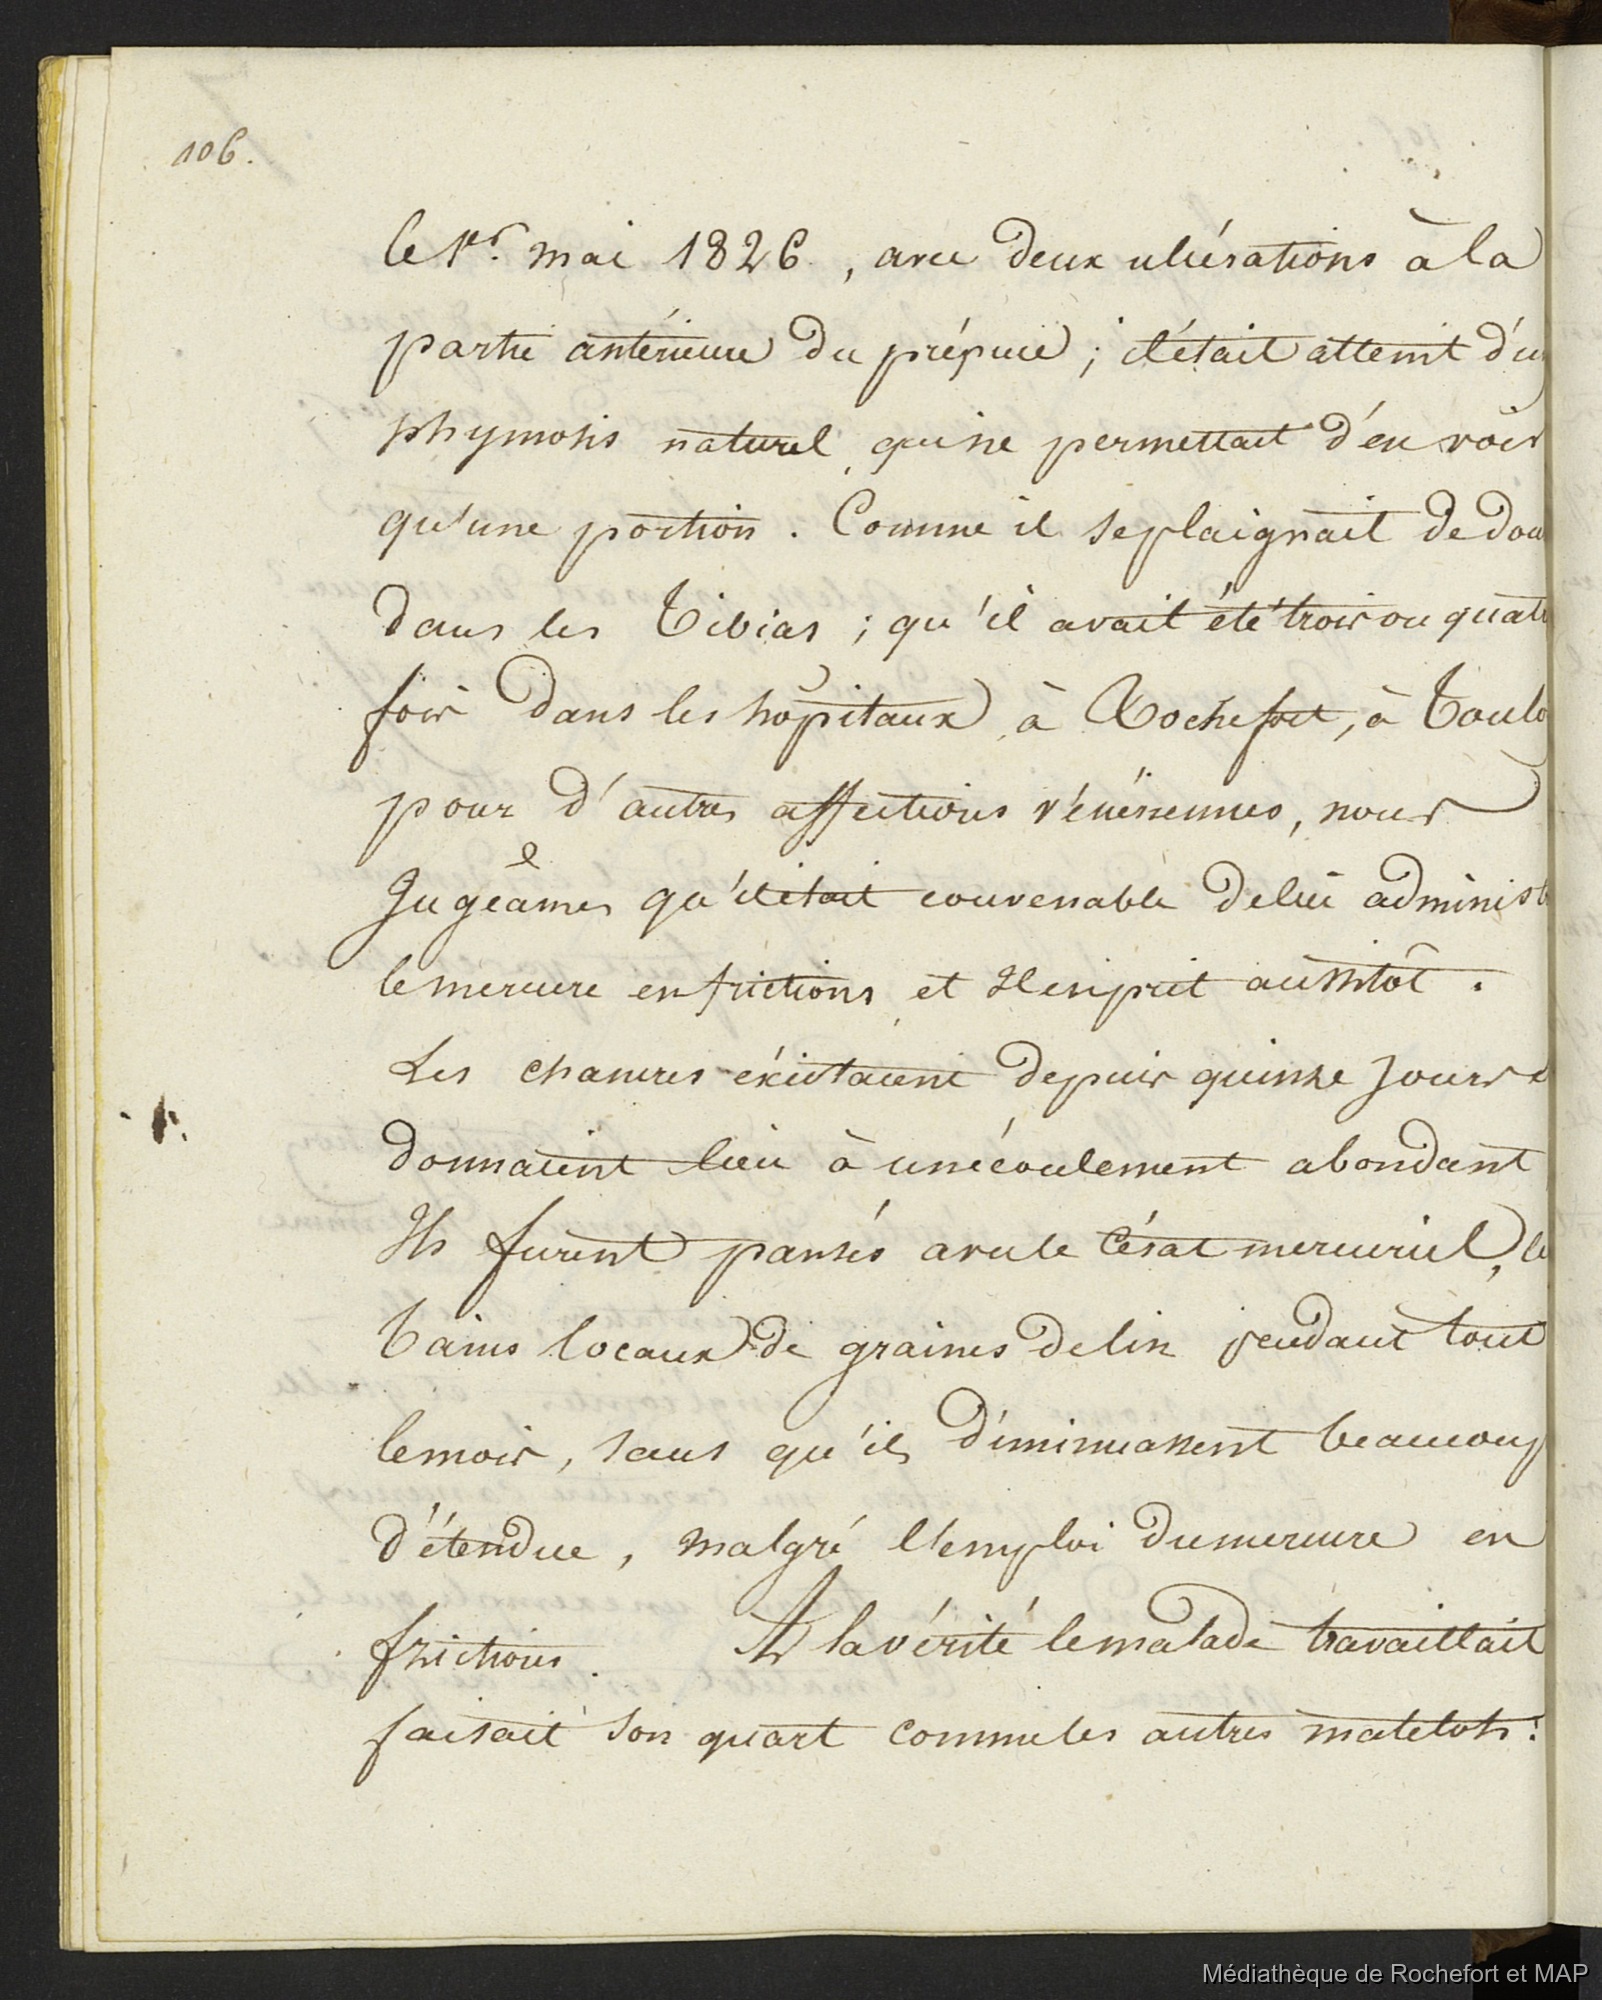 106.
le 1er. mai 1826, avec deux ulcérations à la
partie antérieure du prépuce ; il était atteint d'un
phymosis naturel qui ne permettait d'en voir
qu'une portion. Comme il se plaignait de dou
dans les Tibias ; qu'il avait été trois ou quatr
fois dans les hôpitaux à Rochefort, à Toulo
pour d'autres affections vénériennes, nous
Jugeâmes qu'il était convenable de lui administ
le mercure en frictions et Il en prit aussitôt.
Les chancres éxistaient depuis quinze Jours
donnaient lieu à un écoulement abondant
Ils furent pansés avec le Cérat mercuriel, le
bains locaux de graines de lin pendant tout
le mois, sans qu'ils diminuassent beaucoup
d'étendue, malgré l'emploi du mercure en
frictions. A la vérité le malade travaillait
faisait son quart comme les autres matelots :
Médiathèque de Rochefort et MAP